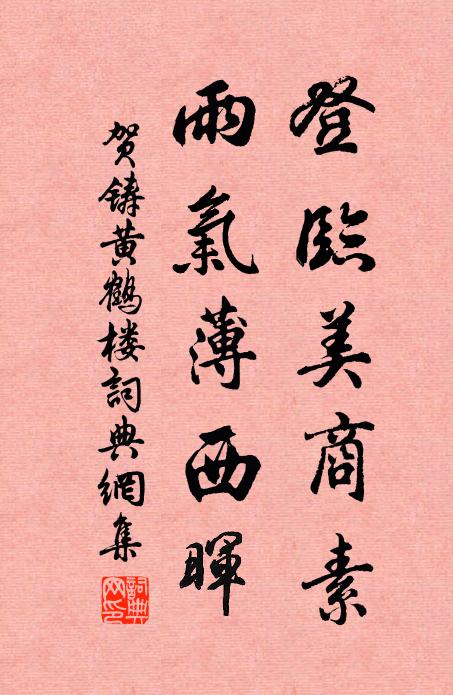 登臨美商素
雨氣薄西暉
贺铸黄鹤楼詞典網集
詞典网印